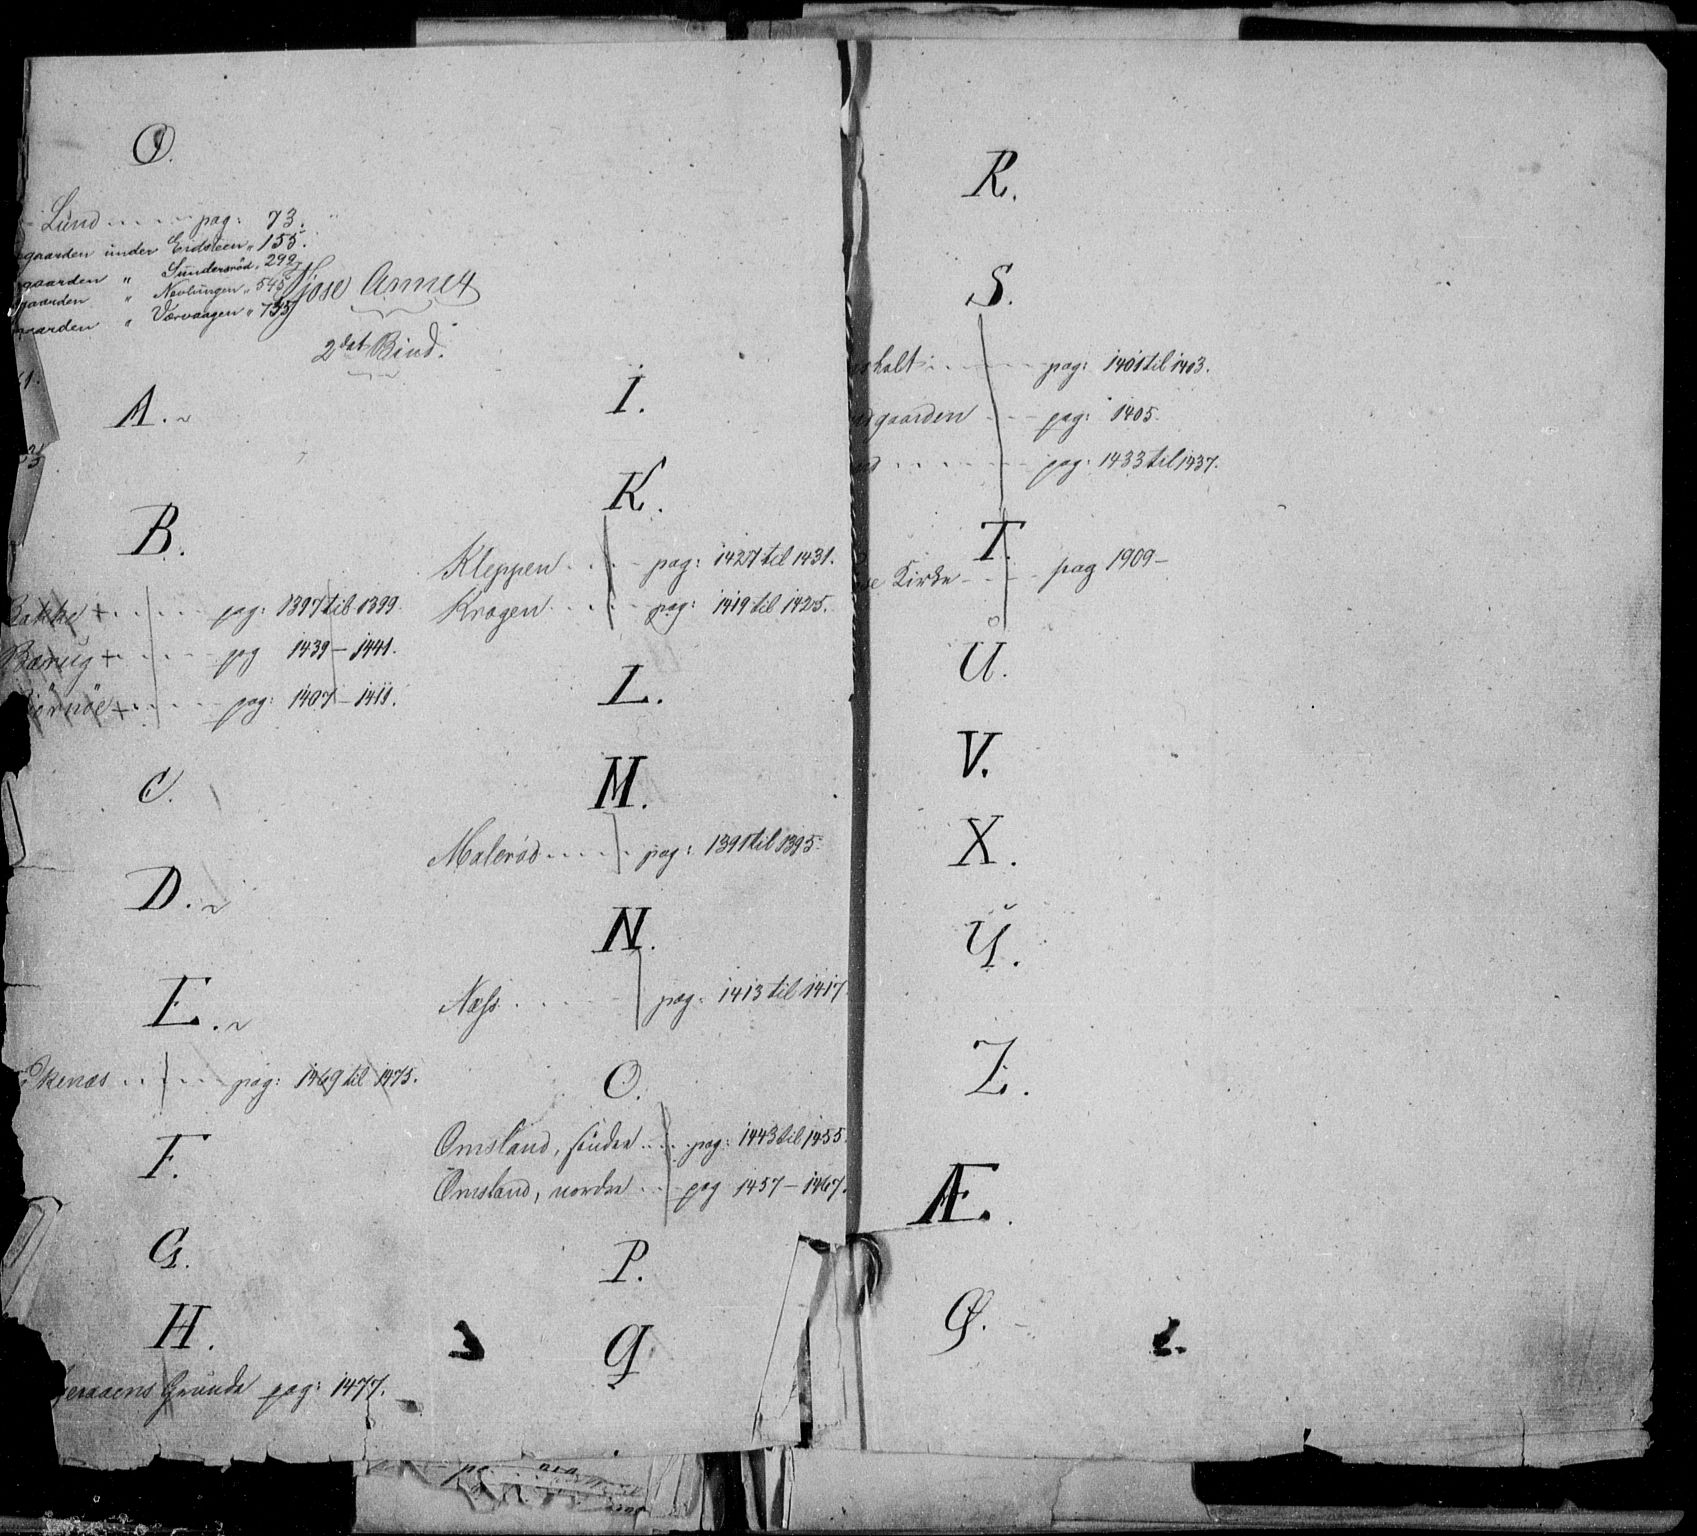 O.
Lund . . . . . pag: 73.
gaarden under Eidsteen " 155.
gaarden " Sundersrød " 292
gaarden " Nevlungen " 545
gaarden " Værvaagen " 755
Tjose Annex
2det Bind.
A.
B.
Bakke + . . . . pag: 1397 til 1399.
Barug + . . . . pag 1439 – 1441.
Bjørnöe + . . . . pag: 1407 – 1411.
C.
D.
E.
Ekenæs . . . . . pag: 1469 til 1475.
F.
G.
H.
geraaens Grunde pag: 1477.
I.
K.
Kleppen . . . . pag: 1427 til 1431.
Kragen . . . . pag: 1419 til 1425.
L.
M.
Malerød . . . . . pag: 1391 til 1395.
N.
Næss . . . . . pag: 1413 til 1417
O.
Omsland, søndre . . . pag: 1443 til 1455.
Omsland, nordre . . pag 1457 – 1467.
P.
Q.
R.
S.
holt . . . . . pag: 1401 til 1403.
gaarden . . . pag: 1405.
. . . . . pag: 1433 til 1437.
T.
Kirke . . . . pag 1909 –
U.
V.
X.
Y.
Z.
Æ.
Ø.